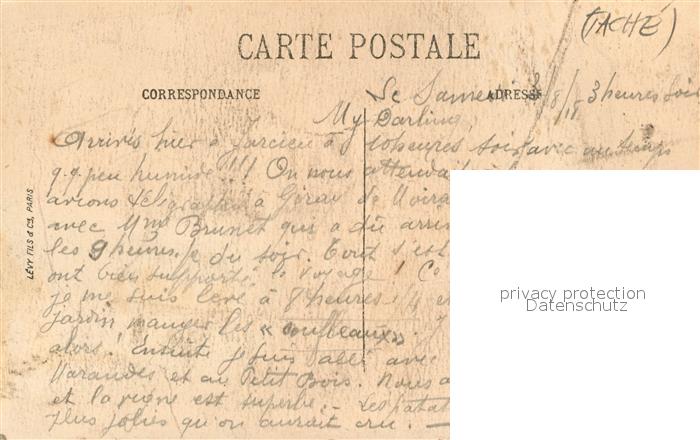 (TACHÉ)
CARTE POSTALE
CORRESPONDANCE
ADRESSE
Le Samedi 3/8/18 3 heures soir
My Darling,
Arrivés hier à Jarcieu à 10 heures soir avec un temps
q.q. peu humide !!! On nous attendait
avions télégraphié à Girau de Moira
avec Mme Brunet qui a dû arri
les 9 heures ½ du soir. Tout s'est
ont bien supporté le voyage ! Ce
je me suis levé à 8 heures 1/4 et
jardin manger les « ».
alors ! Ensuite je suis allé avec
Marandes et au Petit Bois. Nous a
et la vigne est superbe. – Les patat
plus jolies qu'on aurait cru. —
LÉVY FILS & Cie, PARIS
privacy protection
Datenschutz